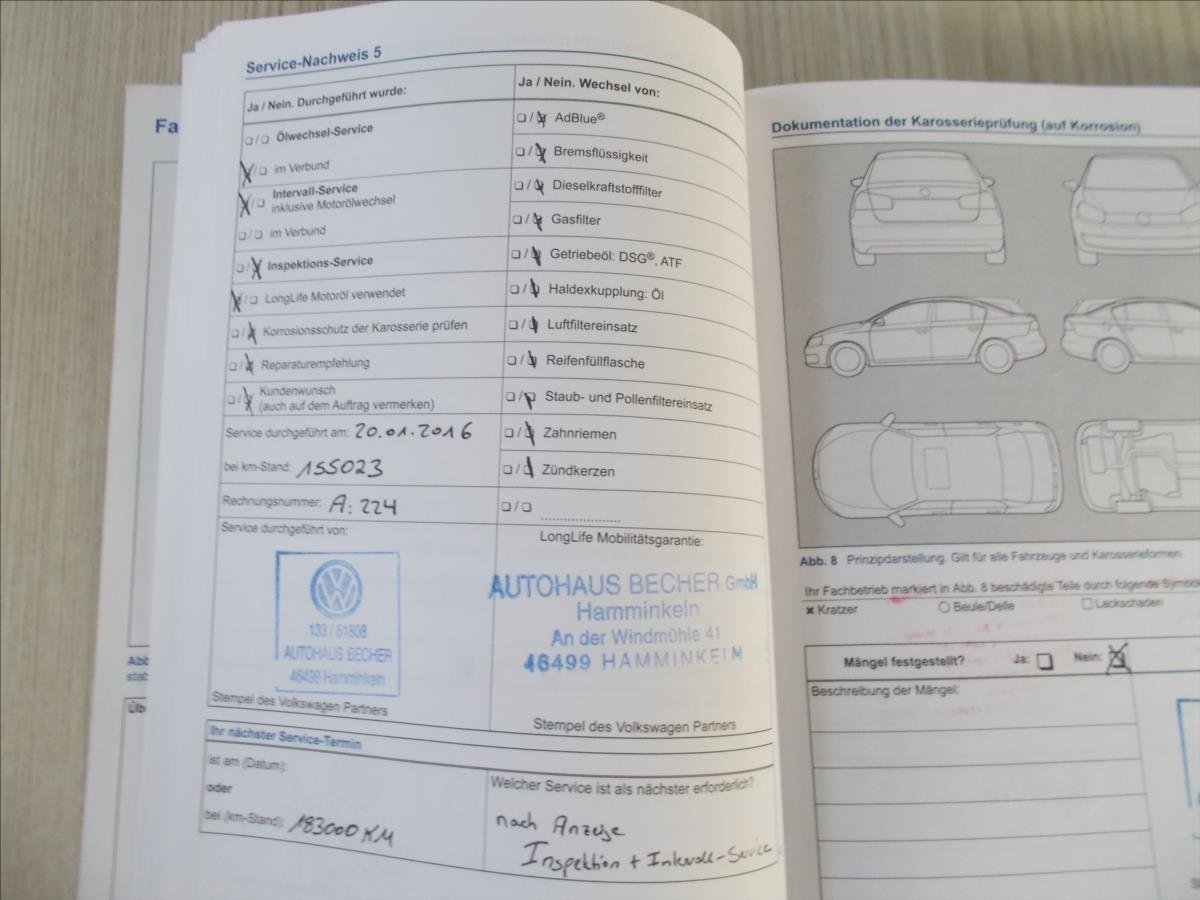 Service-Nachweis 5
Ja / Nein. Durchgeführt wurde:
Ölwechsel-Service
im Verbund
Intervall-Service
inklusive Motorölwechsel
im Verbund
Inspektions-Service
LongLife Motoröl verwendet
Korrosionsschutz der Karosserie prüfen
Reparaturempfehlung
Kundenwunsch
(auch auf dem Auftrag vermerken)
Service durchgeführt am: 20.01.2016
bei km-Stand: 155023
Rechnungsnummer: A: 224
Service durchgeführt von:
133 / 61808
AUTOHAUS BECHER
46499 Hamminkeln
Stempel des Volkswagen Partners
Ja / Nein. Wechsel von:
AdBlue®
Bremsflüssigkeit
Dieselkraftstofffilter
Gasfilter
Getriebeöl: DSG®, ATF
Haldexkupplung: Öl
Luftfiltereinsatz
Reifenfüllflasche
Staub- und Pollenfiltereinsatz
Zahnriemen
Zündkerzen
LongLife Mobilitätsgarantie:
AUTOHAUS BECHER GmbH
Hamminkeln
An der Windmühle 41
46499 HAMMINKELN
Stempel des Volkswagen Partners
Ihr nächster Service-Termin
ist am (Datum):
oder
bei (km-Stand): 183000 KM
Welcher Service ist als nächster erforderlich?
nach Anzeige
Inspektion + Intervall-Service
Fa
Abb
stab
Üb
Dokumentation der Karosserieprüfung (auf Korrosion)
Abb. 8 Prinzipdarstellung. Gilt für alle Fahrzeuge und Karosserieformen.
Ihr Fachbetrieb markiert in Abb. 8 beschädigte Teile durch folgende Symbo
Kratzer Beule/Delle Lackschaden
Mängel festgestellt? Ja: Nein:
Beschreibung der Mängel: